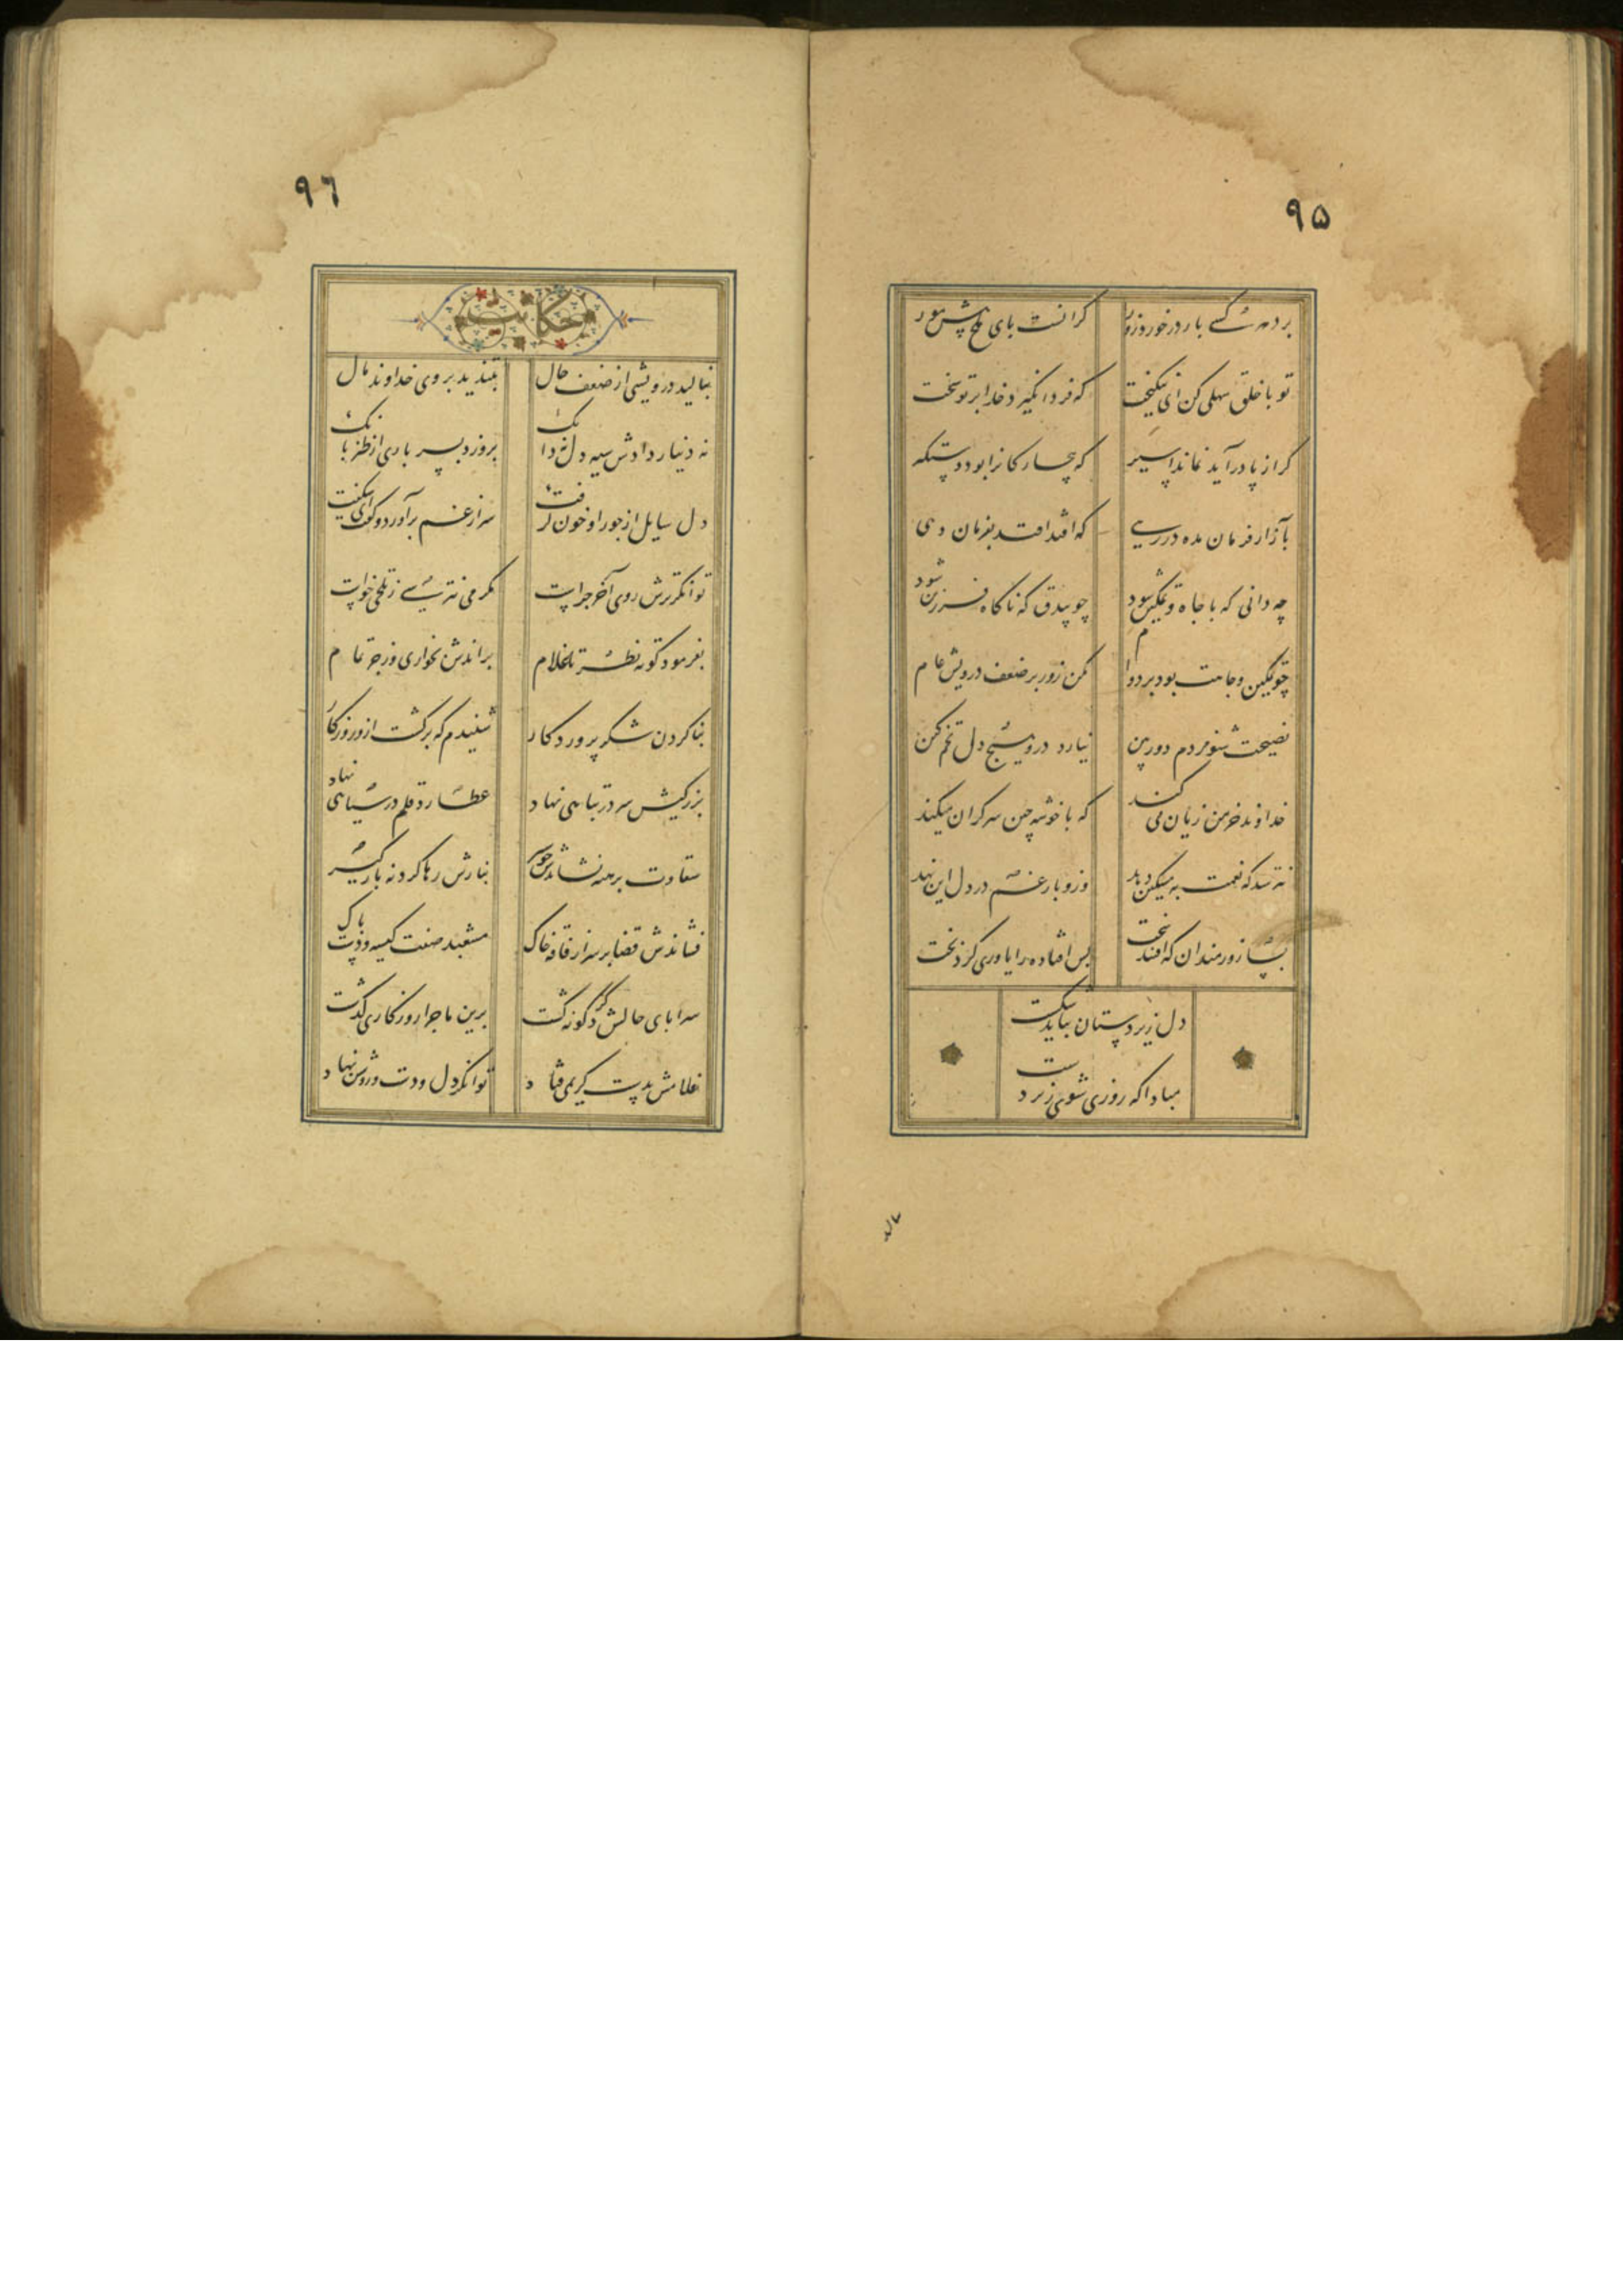 ۹۵
برد هر کسی بار در خورد زور
گرانست پای ملخ پیش مور
تو با خلق سهلی کن ای نیکبخت
که فردا نگیرد خدا بر تو سخت
گر از پا درآید نماند اسیر
که بیچارگانرا بود دستگیر
بآزار فرمان مده بر رهی
که افتد افتد بفرمان دهی
چه دانی که با جاه و تمکین شود
چو بیدق که ناگاه فرزین شود
چو تمکین و جاهت بود بر دوام
مکن زور بر ضعف درویش عام
نصیحت شنو مردم دوربین
نپارد در هیچ دل تخم کین
خداوند خرمن زیان می کند
که با خوشه چین سر گران میکند
نترسد که نعمت به مسکین دهد
وزو بار غم در دل این نهد
بسا زورمندان که افتند سخت
بس افتاده را یاوری کرد بخت
دل زیردستان نباید شکست
مبادا که روزی شوی زیردست
۹٦
حکایت
بنالید درویشی از ضعف حال
بتندید بر روی خداوند مال
نه دینار دادش سیه دل نه دانک
برو زد بسر باری از طنز بانک
دل سایل از جور او خون گرفت
سر از غم برآورد و گفت ای شگفت
توانگر ترش روی آخر چراست
مگر می نترسی ز تلخی خواست
بفرمود کوته نظر تا غلام
براندش بخواری و زجر تمام
بنا کردن شکر پروردگار
شنیدم که برگشت ازو روزگار
بزرگیش سر در تباهی نهاد
عطارد قلم در سیاهی نهاد
شقاوت برهنه نشاندش چو سیر
نه بارش رها کرد نه بارگیر
فشاندش قضا بر سر از فاقه خاک
مشعبد صفت کیسه و دست پاک
سراپای حالش دگرگونه گشت
برین ماجرا روزگاری گذشت
غلامش بدست کریمی فتاد
توانگر دل و دست و روشن نهاد